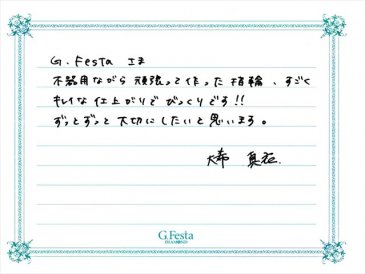 G.Festa さま
不器用ながら頑張って作った指輪、すごく
キレイな仕上がりでびっくりです!!
ずっとずっと大切にしたいと思います。
真衣
G.Festa
DIAMOND